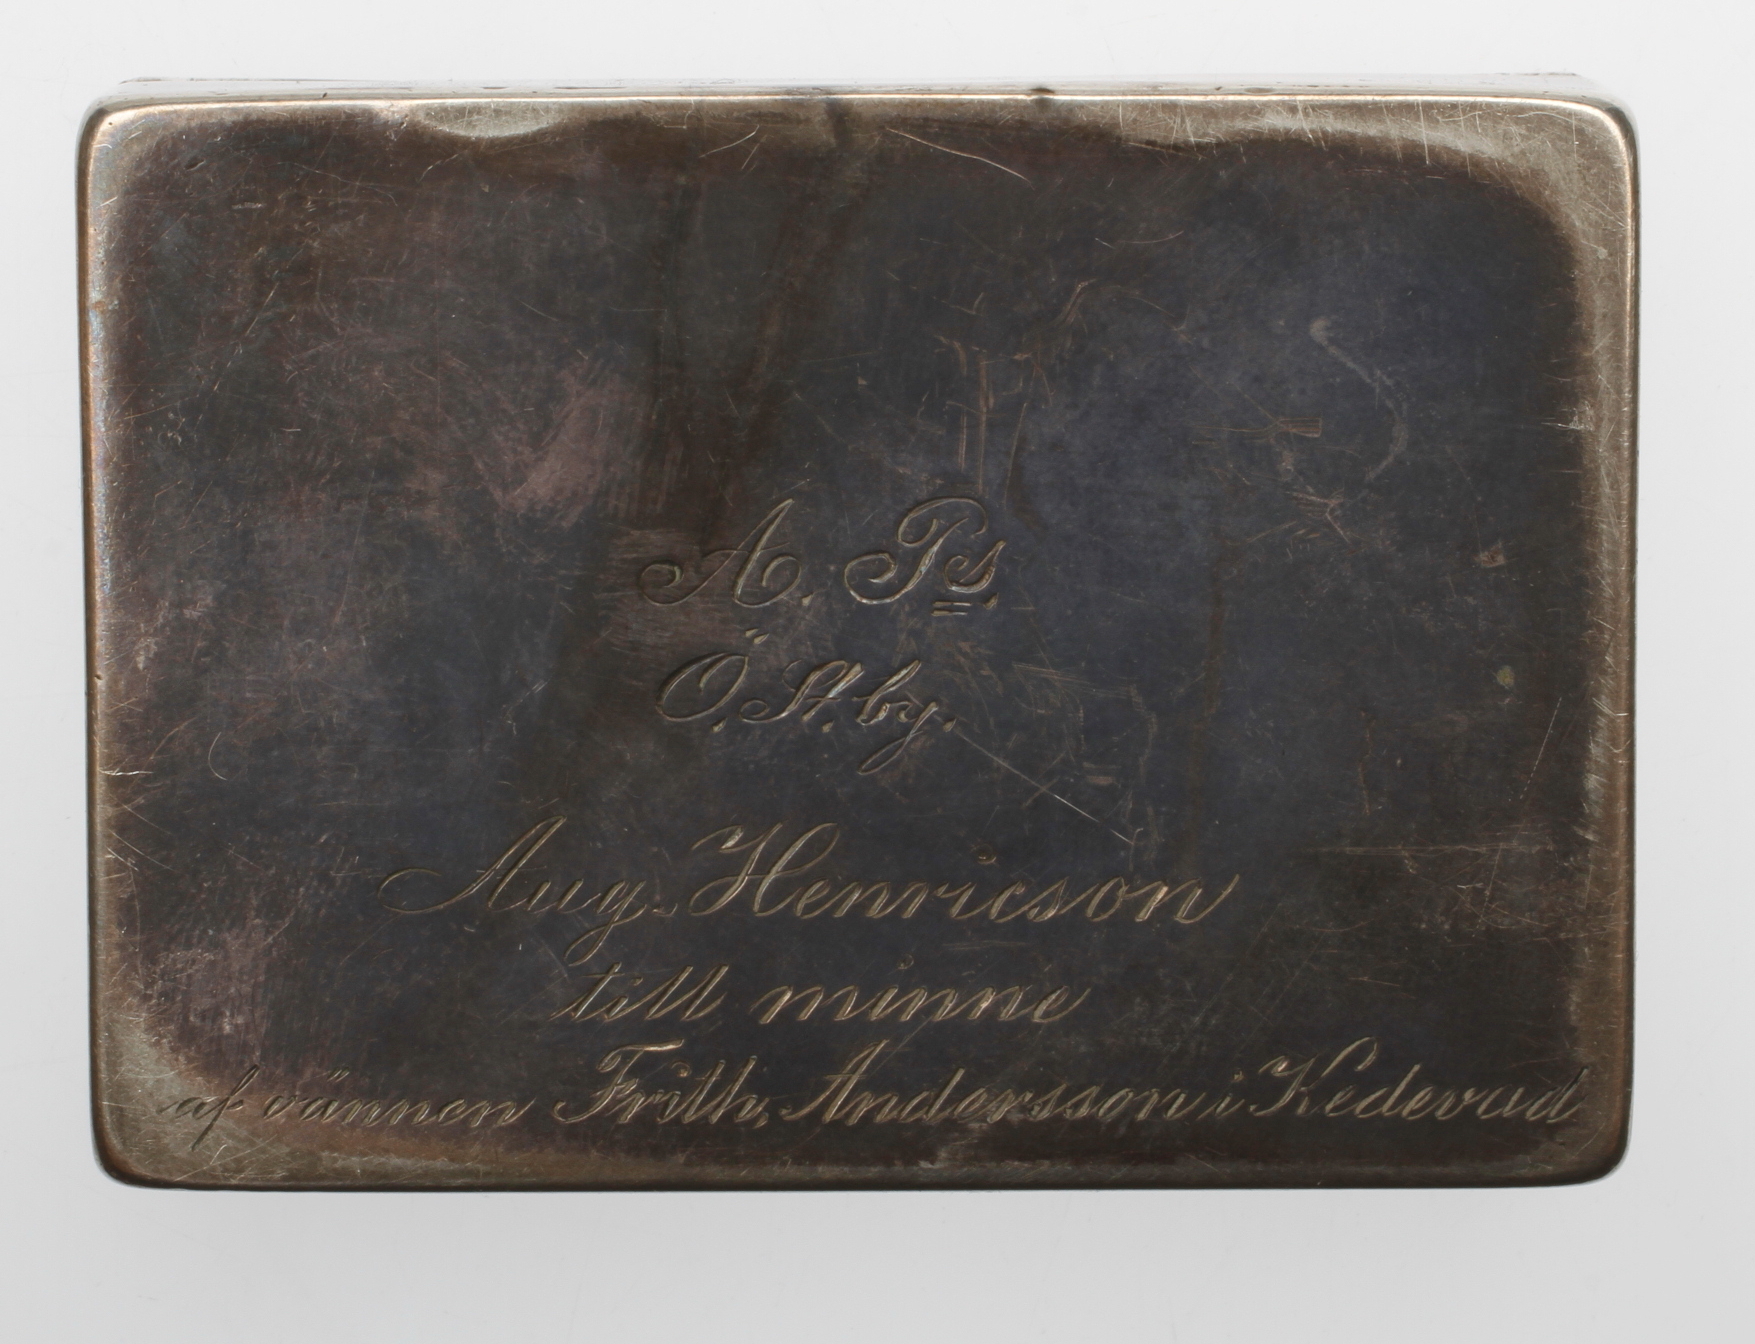 A. Ps
Ö. St. by.
Aug. Henricson
till minne
af vännen Frith. Andersson i Kedevad